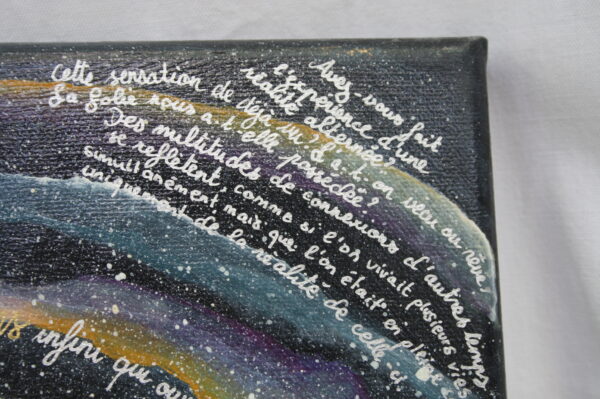 Avez-vous fait
l'expérience d'une
réalité alternée?
Cette sensation de déjà vu? L'a-t-on vécu ou rêvé?
La folie nous a-t-elle possédée?
Des multitudes de connexions d'autres temps
se reflètent, comme si l'on vivait plusieurs vies
simultanément mais que l'on était en pleine
uniquement de la réalité de celle-ci
infini qui